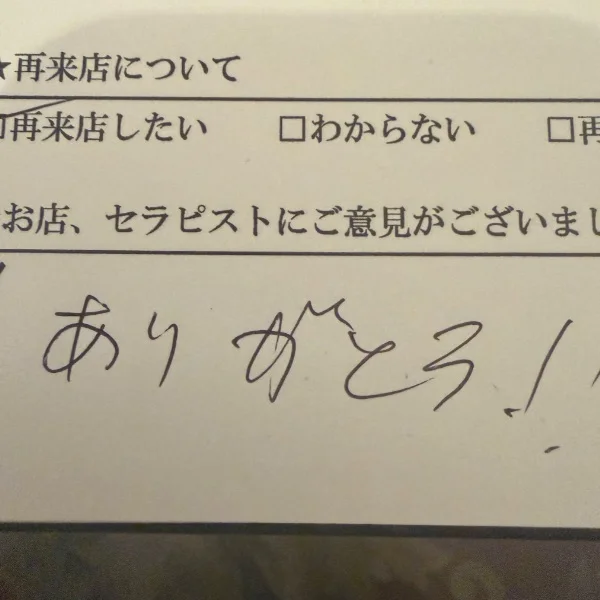 ★再来店について
□再来店したい □わからない □再
お店、セラピストにご意見がございまし
ありがとう!!